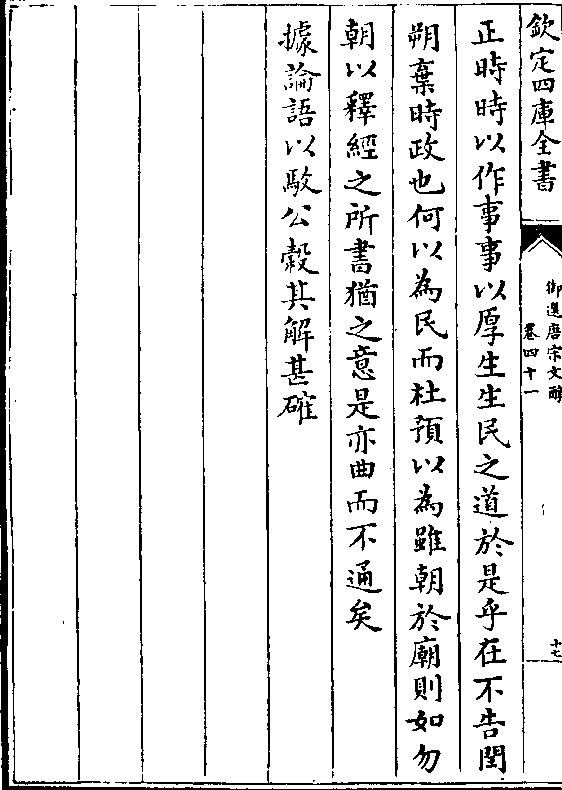 欽定四庫全書
御選唐宋文醇
卷四十一
十七
正時時以作事事以厚生生民之道於是乎在不告閏
朔棄時政也何以為民而杜預以為雖朝於廟則如勿
朝以釋經之所書猶之意是亦曲而不通矣
據論語以駁公榖其解甚確